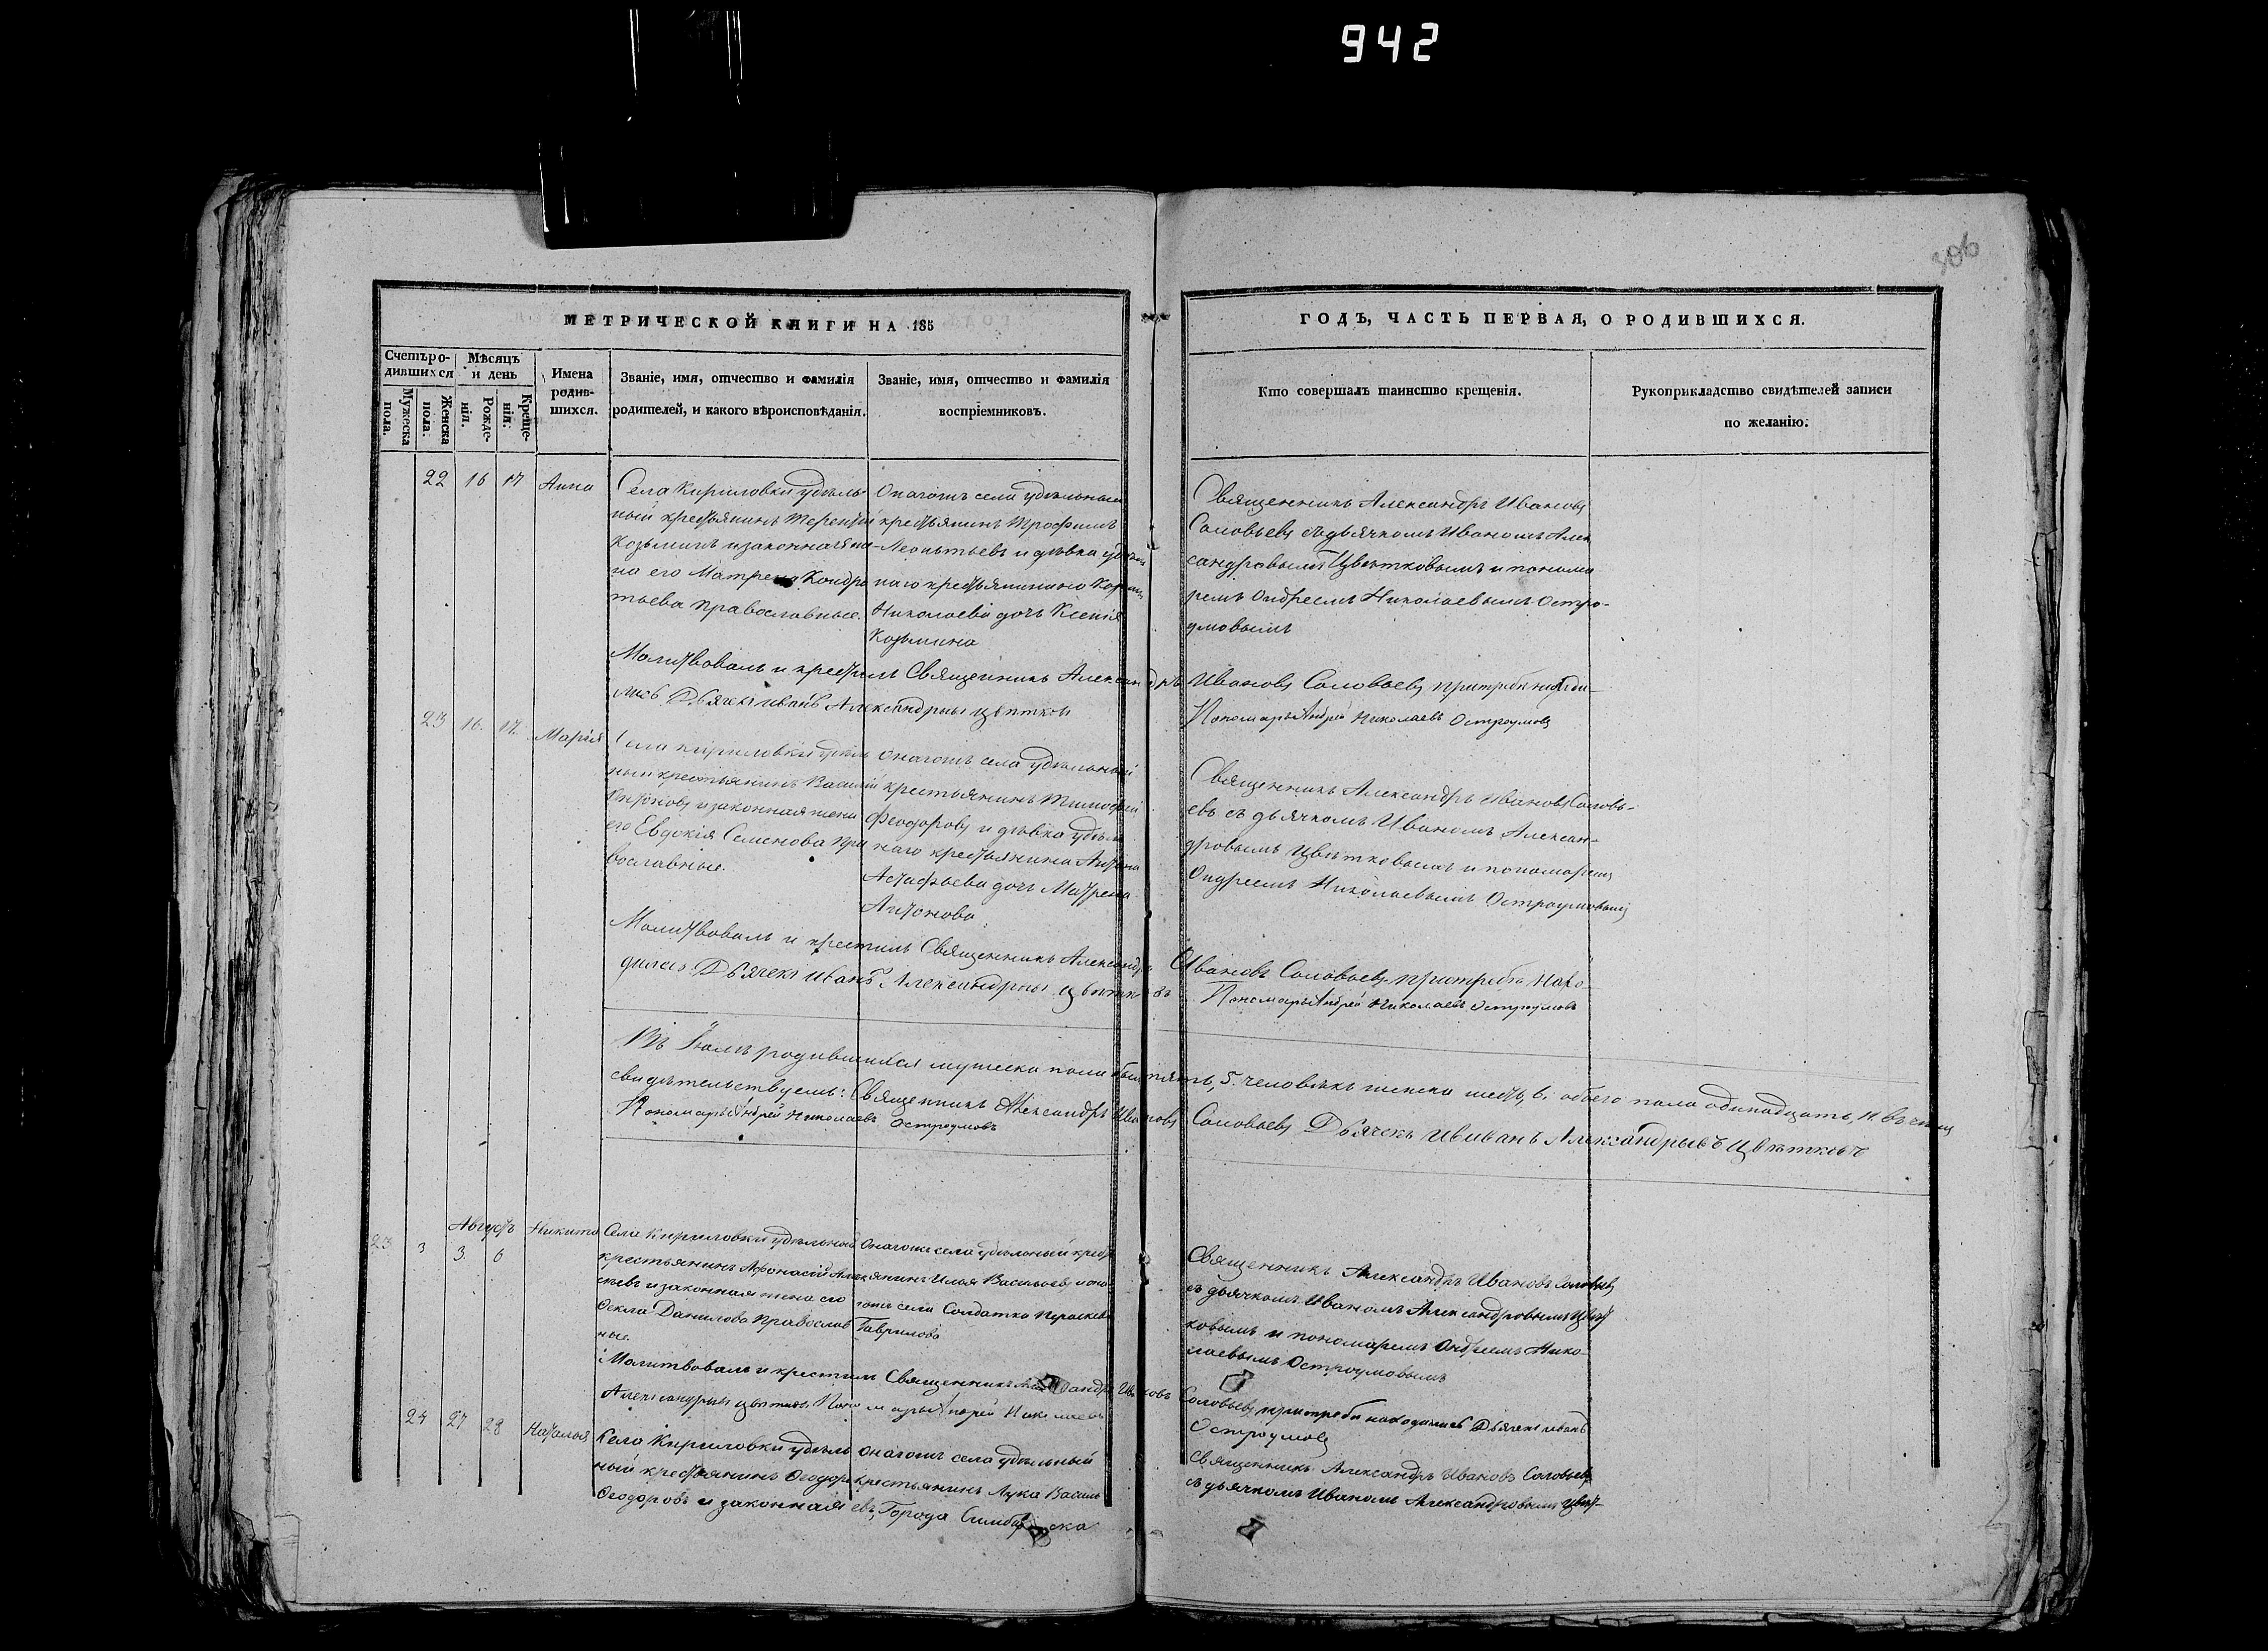 942
306
МЕТРИЧЕСКОЙ КНИГИ НА 185
ГОДЪ, ЧАСТЬ ПЕРВАЯ, О РОДИВШИХСЯ.
Счетъ ро-
дившихся
Мужеска пола.
Женска пола.
Мѣсяцъ
и день
Рожде-
нія.
Креще-
нія.
Имена
родив-
шихся.
Званіе, имя, отчество и фамилія
родителей, и какого вѣроисповѣданія.
Званіе, имя, отчество и фамилія
воспріемниковъ.
Кто совершалъ таинство крещенія.
Рукоприкладство свидѣтелей записи
по желанію.
22 16 17 Анна
Села Кириловки удѣль
ный крестьянинъ Терентій
Козьминъ и законная же
на его Матрена Кондра
тьева православные.
Онагожъ села удѣльный
крестьянинъ Трофимъ
Леонтьевъ и дѣвка удѣль
наго крестьянина
Николаева дочь Ксенія
Козьмина
Священникъ Александръ Ивановъ
Соловьевъ съ дьячкомъ Иваномъ Алек
сандровымъ Цвѣтковымъ и понома
ремъ Андреемъ Николаевымъ Остро-
умовымъ
Молитвовалъ и крестилъ Священникъ Александръ Ивановъ Соловьевъ при требѣ находи-
лись Дьячекъ Иванъ Александрывъ Цвѣтковъ Пономарь Андрей Николаевъ Остроумовъ
23 16. 17. Марія
Села Кириловки удѣль
ный крестьянинъ Василій
Антоновъ и законная жена
его Евдокія Семенова пра
вославные.
Онагожъ села удѣльный
крестьянинъ Тимофей
Феодоровъ и дѣвка удѣль
наго крестьянина Антона
Астафьева дочь Матрена
Антонова
Священникъ Александръ Ивановъ Соловь-
евъ съ дьячкомъ Иваномъ Алексан-
дровымъ Цвѣтковымъ и пономаремъ
Андреемъ Николаевымъ Остроумовымъ
Молитвовалъ и крестилъ Священникъ Александръ Ивановъ Соловьевъ при требѣ нахо-
дились Дьячекъ Иванъ Александрывъ Цвѣтковъ Пономарь Андрей Николаевъ Остроумовъ
Въ Іюлѣ родившихся мужеска пола пять, 5. человѣкъ женска шесть, 6. обоего пола одинадцать, 11. въ чемъ
свидѣтельствуемъ: Священникъ Александръ Ивановъ Соловьевъ Дьячекъ Ививанъ Александрывъ Цвѣтковъ
Пономарь Андрей Николаевъ Остроумовъ
Августъ
23 3 6 Никита
Села Кириловки удѣльный
крестьянинъ Афонасій
и законная жена его
Фекла Данилова православ
ные.
Онагожъ села удѣльный крест
янинъ Илья Васильевъ и она
гожъ села Солдатка Прасковья
Гаврилова
Священникъ Александръ Ивановъ Соловьевъ
съ дьячкомъ Иваномъ Александровымъ Цвѣт
ковымъ и пономаремъ Андреемъ Нико-
лаевымъ Остроумовымъ
Молитвовалъ и крестилъ Священникъ Александръ Ивановъ Соловьевъ при требѣ находились Дьячекъ Иванъ
Александрывъ Цвѣтковъ Пономарь Андрей Николаевъ Остроумовъ
24 27 28 Наталья
Села Кириловки удѣль
ный крестьянинъ Феодоръ
Феодоровъ и законная
Онагожъ села удѣльный
крестьянинъ Лука Василь
евъ, Города Симбирска
Священникъ Александръ Ивановъ Соловьевъ
съ дьячкомъ Иваномъ Александровымъ Цвѣт-